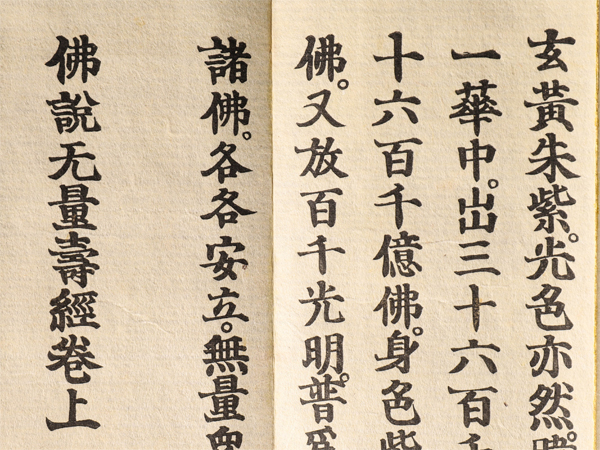 玄黃朱紫。光色亦然。
一華中。出三十六百千
十六百千億佛。身色紫
佛。又放百千光明。普爲
諸佛。各各安立。無量衆
佛說无量壽經卷上